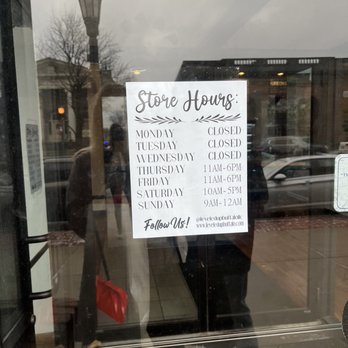 Store Hours:
MONDAY CLOSED
TUESDAY CLOSED
WEDNESDAY CLOSED
THURSDAY 11AM-6PM
FRIDAY 11AM-6PM
SATURDAY 10AM-5PM
SUNDAY 9AM-12AM
Follow Us!